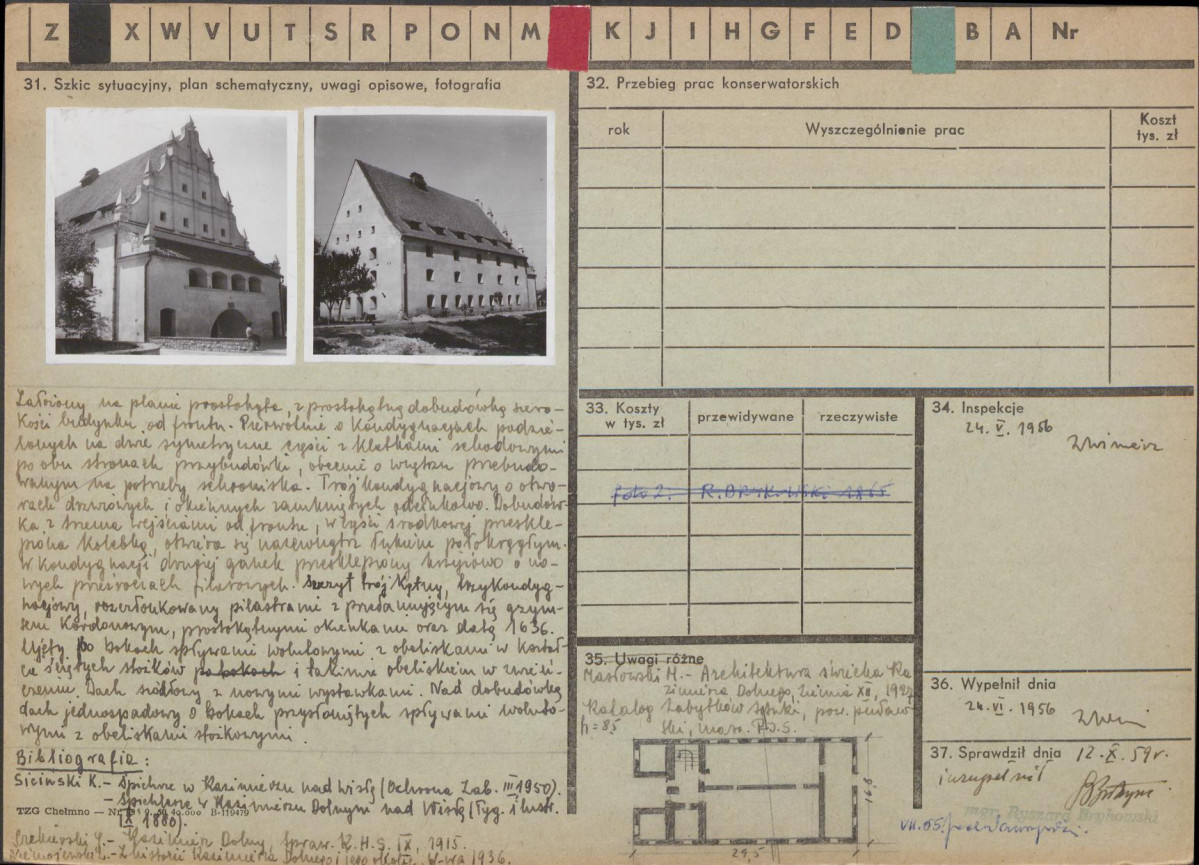 Z X W V U T S R P O N M K J I H G F E D B A Nr
31. Szkic sytuacyjny, plan schematyczny, uwagi opisowe, fotografia
Założony na planie prostokąta, z prostokątną dobudówką szero-
kości budynku od frontu. Pierwotnie o kondygnacjach podzie-
lonych na dwie symetryczne części z klatkami schodowymi
po obu stronach przybudówki, obecnie o wnętrzu przebudo-
wanym na potrzeby schroniska. Trójkondygnacjowy o otwo-
rach drzwiowych i okiennych zamkniętych odcinkowo. Dobudów-
ka z trzema wejściami od frontu, w części środkowej przeskle-
piona kolebką, otwiera się nazewnątrz łukiem półokrągłym.
W kondygnacji drugiej ganek przesklepiony krzyżowo o no-
wych prześwitach filarowych. Szczyt trójkątny, trzykondyg-
nacjowy, rozczłonkowany pilastrami z przełamującym się gzym-
sem kordonowym, prostokątnymi okienkami oraz datą 1636.
Ujęty po bokach spływami wolutowymi z obeliskami w kształ-
cie ściętych stożków po bokach i takimże obeliskiem w zwień-
czeniu. Dach siodłowy z nowymi wystawkami. Nad dobudówką
dach jednospadowy o bokach przysłoniętych spływami woluto-
wymi z obeliskami stożkowymi.
Bibliografia:
Siciński K. – Spichrze w Kazimierzu nad Wisłą (Ochrona Zab. III 1950).
– Spichrze w Kazimierzu Dolnym nad Wisłą (Tyg. ilustr.
X 1880).
TZG Chełmno – Nr 40.000 B-119479
Kazimierz Dolny, Spraw. K.H.S. IX, 1915.
Z historii Kazimierza Dolnego i jego okolic. W-wa 1936.
32. Przebieg prac konserwatorskich
rok Wyszczególnienie prac Koszt tys. zł
33. Koszty w tys. zł przewidywane rzeczywiste
foto 2. R. BRYKOWSKI. 1965
34. Inspekcje
24. V. 1956
35. Uwagi różne
Masłowski M. – Architektura świecka Ka-
zimierza Dolnego, Ziemia XII, 1927
Katalog Zabytków Sztuki, pow. puław-
ski, P.I.S.
h = 85
16,5
29,5
36. Wypełnił dnia
24. VI. 1956
37. Sprawdził dnia 12. X. 59 r.
i uzupełnił
mgr Ryszard Brykowski
VII. 65.